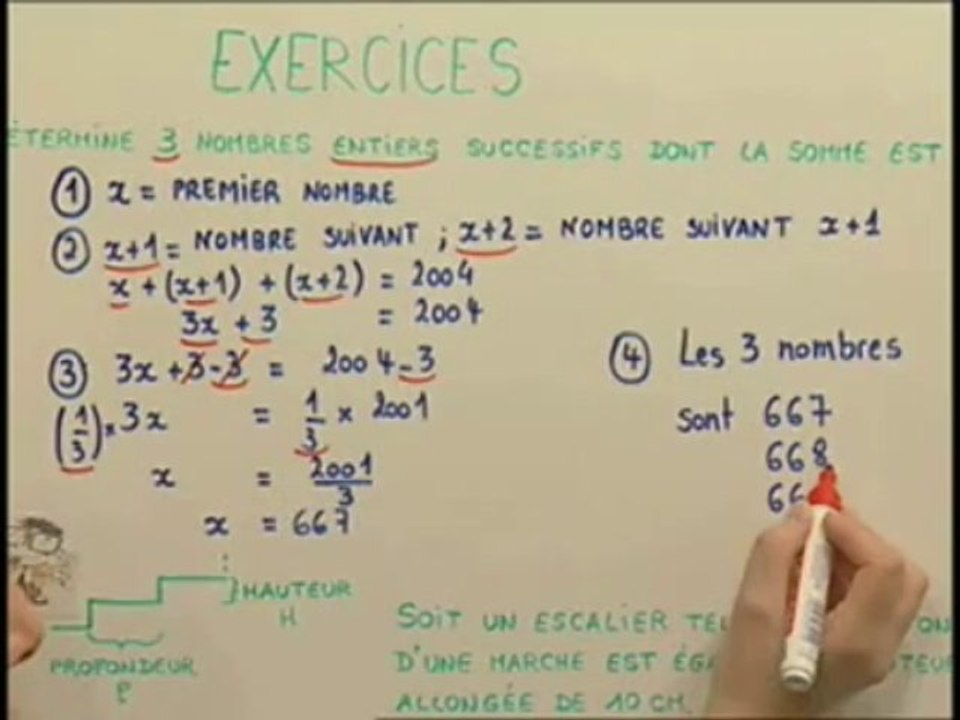 EXERCICES
ÉTERMINE 3 NOMBRES ENTIERS SUCCESSIFS DONT LA SOMME EST
① x = PREMIER NOMBRE
② x+1 = NOMBRE SUIVANT ; x+2 = NOMBRE SUIVANT x+1
x + (x+1) + (x+2) = 2004
3x + 3 = 2004
③ 3x + 3 - 3 = 2004 - 3
(1/3) × 3x = 1/3 × 2001
x = 2001/3
x = 667
④ Les 3 nombres
sont 667
668
66
HAUTEUR
H
PROFONDEUR
P
SOIT UN ESCALIER TEL
D'UNE MARCHE EST
ALLONGÉE DE 10 CM.